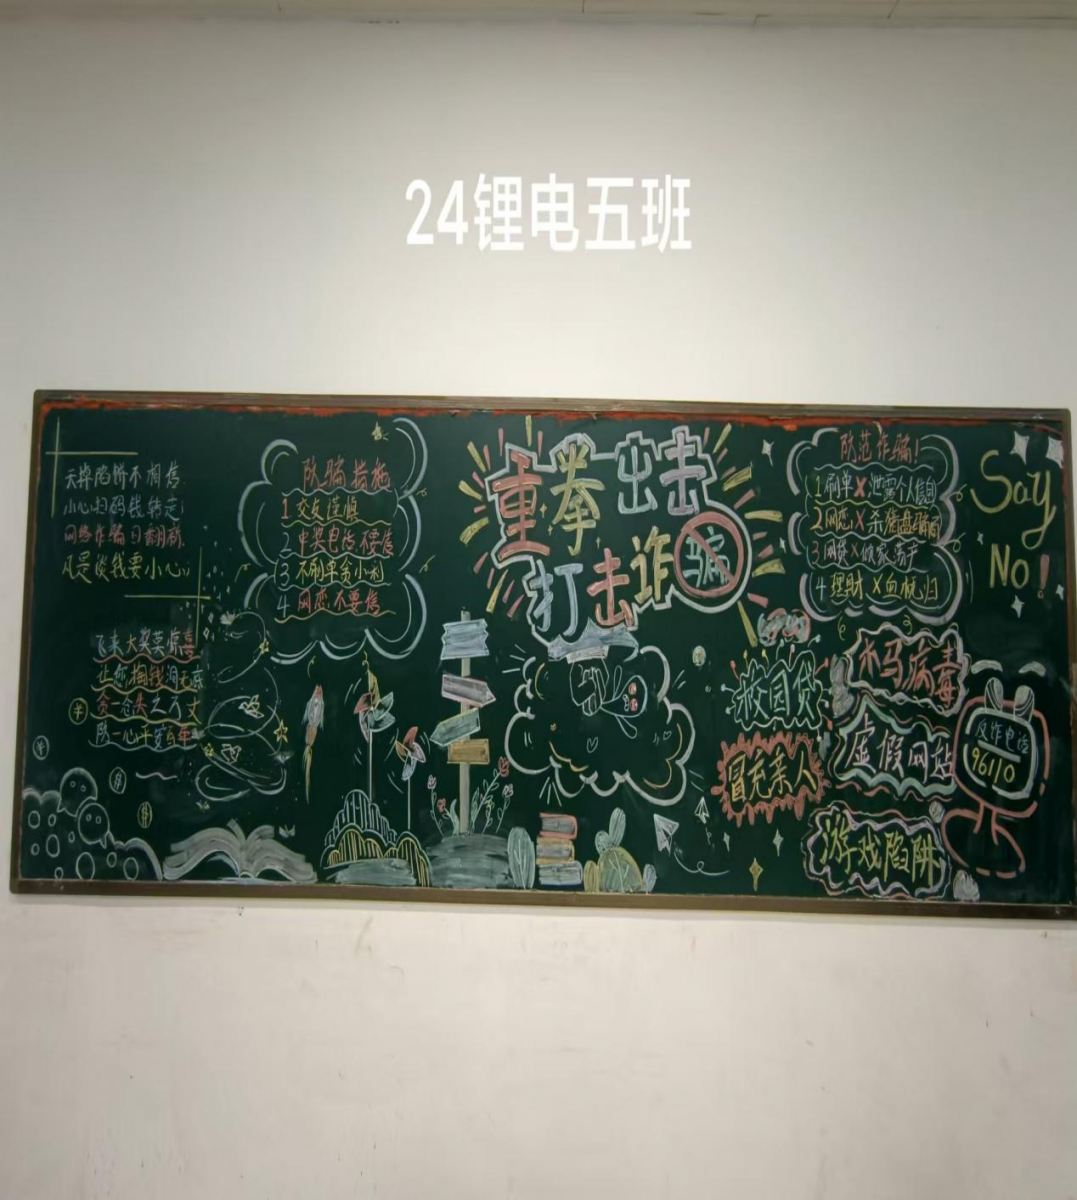 24锂电五班
重拳出击
打击诈骗
天掉陷饼不相信
小心扫码钱转走
网络诈骗日翻新
凡是谈钱要小心
飞来大奖莫惊喜
让你掏钱洞无底
防骗措施
1 交友谨慎
2 中奖电话不要信
3 不刷单贪小利
4 网恋不要信
防范诈骗!
1 刷单X泄露个人信息
2 网恋X杀猪盘骗局
3 网贷X倾家荡产
4 理财X血本无归
Say
No!
校园贷
木马病毒
冒充亲人
虚假网站
反诈电话
96110
游戏陷阱